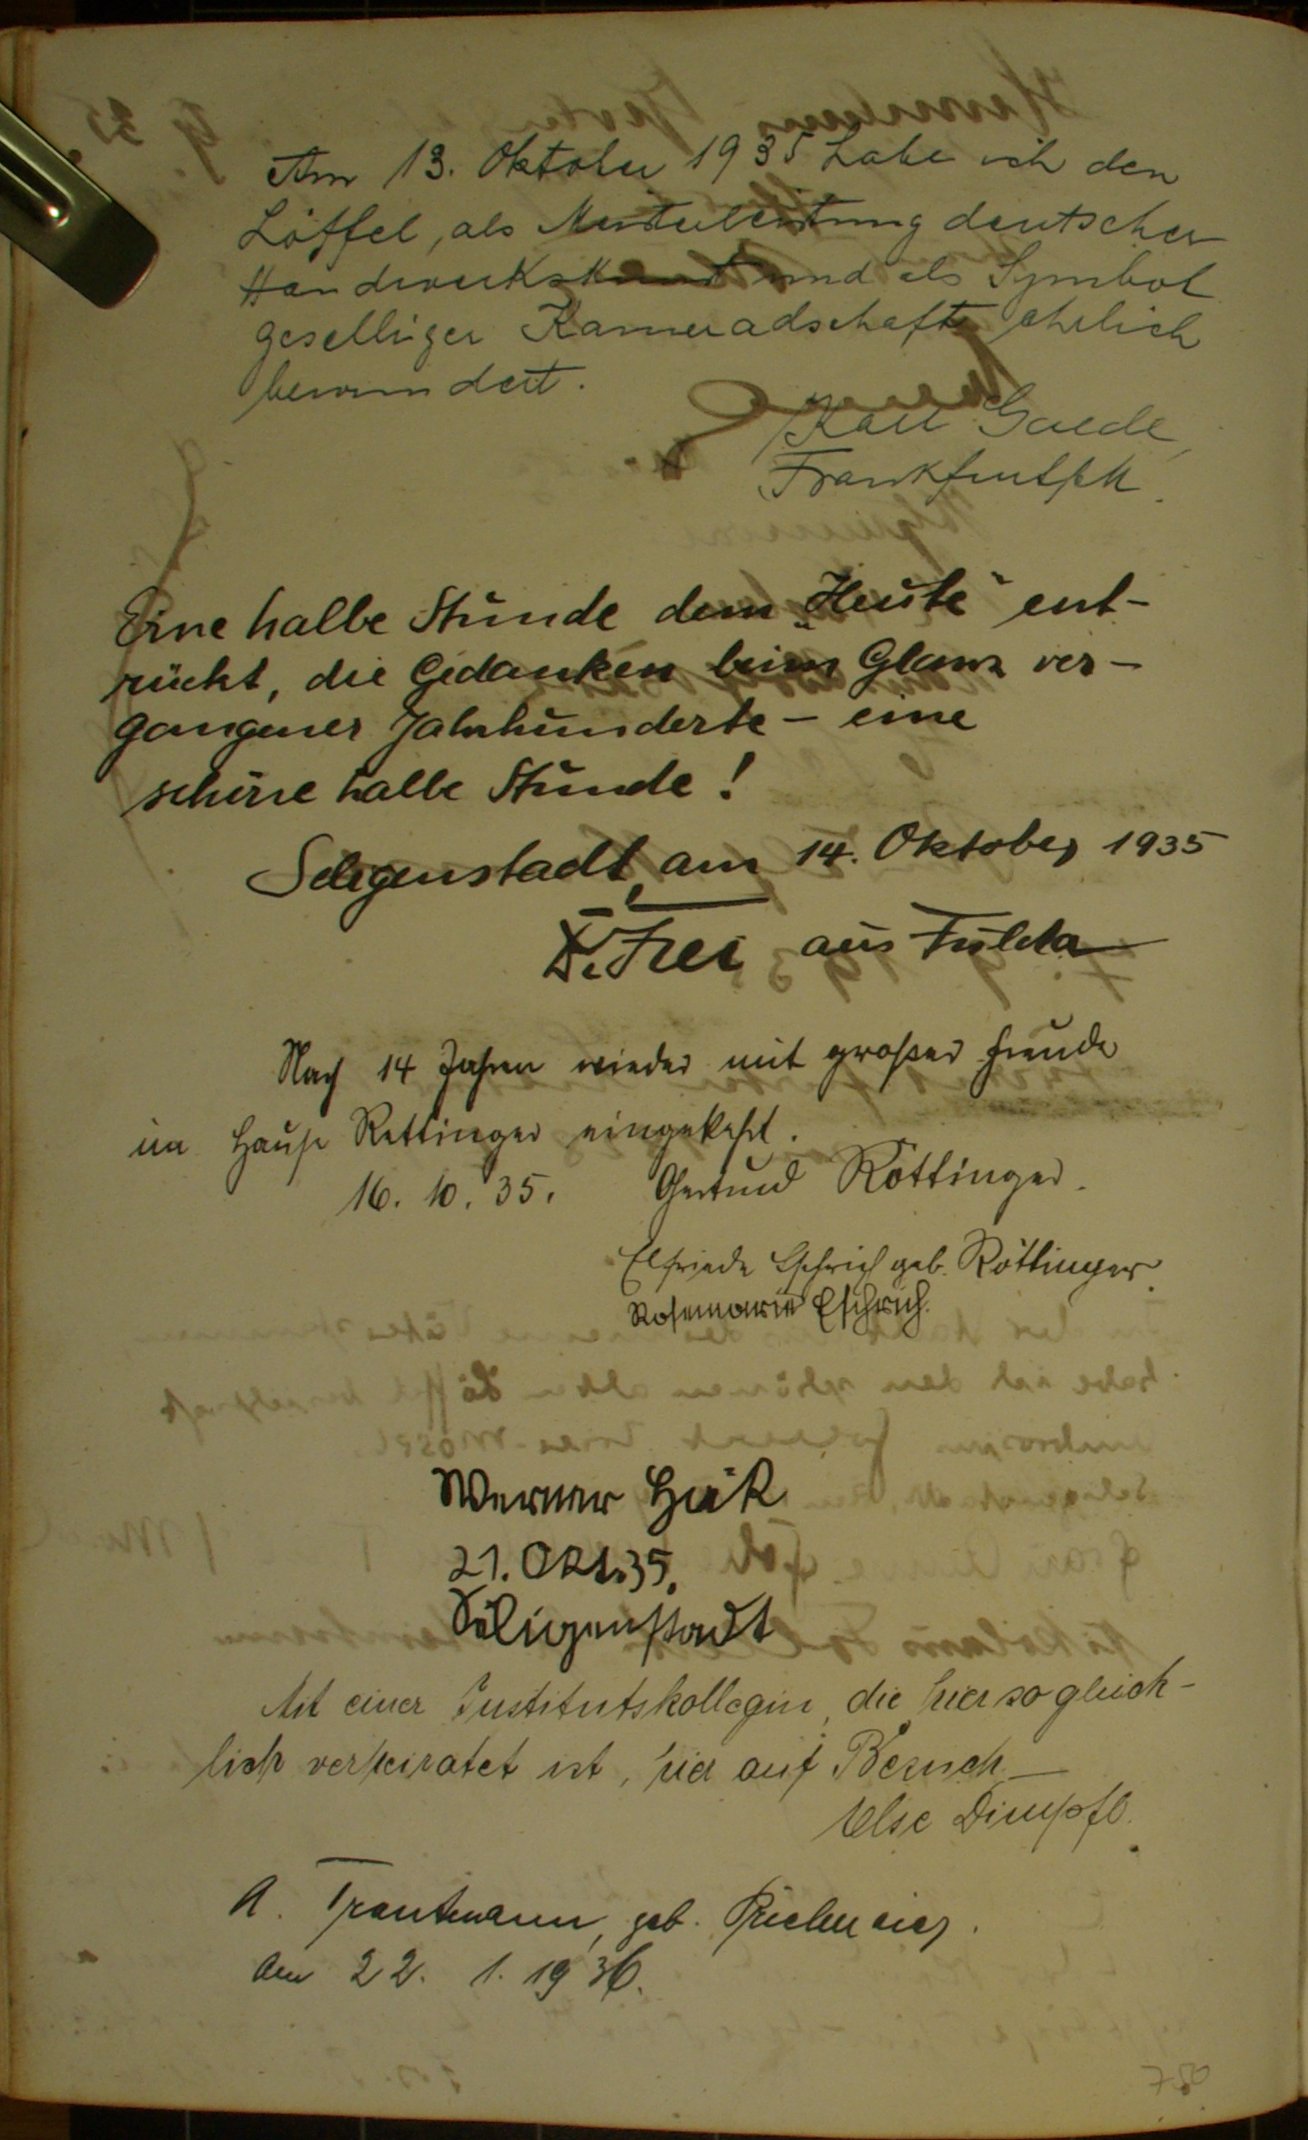 Am 13. Oktober 1935 habe ich den
Löffel, als Meisterleistung deutscher
Handwerkskunst und als Symbol
geselliger Kameradschaft ehrlich
bewundert.
Karl Gaede,
Frankfurt/M.
Eine halbe Stunde dem „Heute“ ent-
rückt, die Gedanken beim Glanz ver-
gangener Jahrhunderte – eine
schöne halbe Stunde!
Seligenstadt, am 14. Oktober 1935
Frei aus Fulda
Nach 14 Jahren wieder mit großer Freude
im Hause Rettinger eingekehrt.
16. 10. 35. Gertrud Röttinger.
Elfriede Eschrich geb. Röttinger.
Rosemarie Eschrich.
Werner
21. Okt. 35.
Seligenstadt
Mit einer Institutskollegin, die hier so glück-
lich verheiratet ist, hier auf Besuch –
Else Dimpfl.
A. Trautmann, geb.
den 22. 1. 1936.